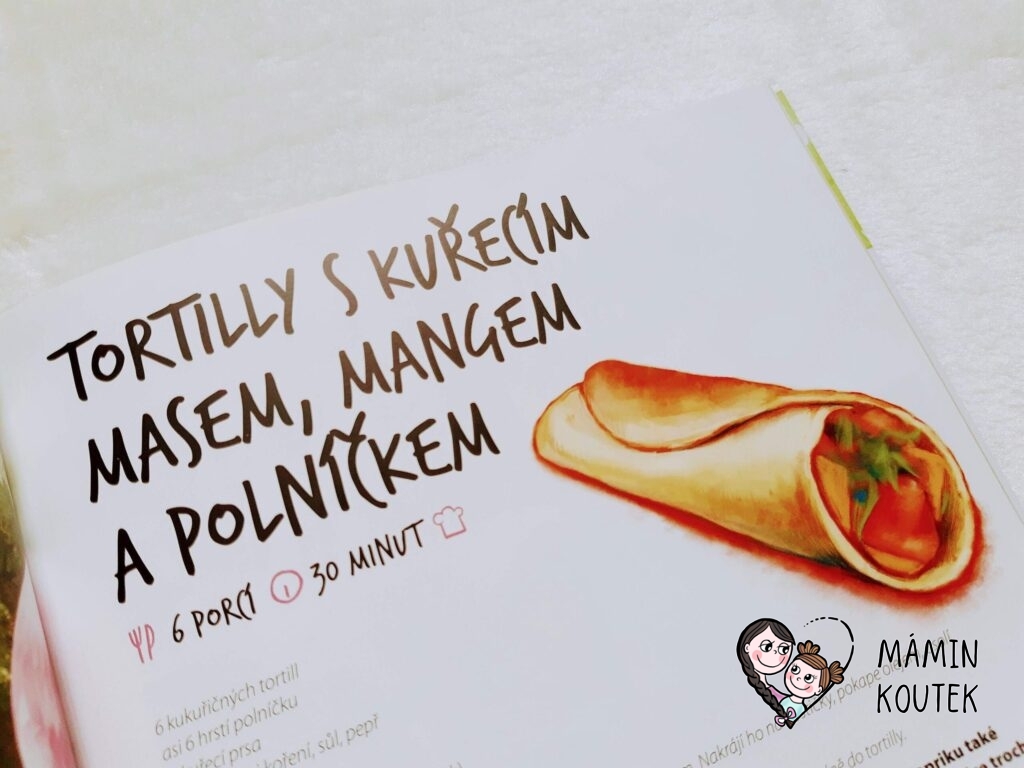 TORTILLY S KUŘECÍM
MASEM, MANGEM
A POLNÍČKEM
6 PORCÍ 30 MINUT
6 kukuřičných tortill
asi 6 hrstí polníčku
prsa
koření, sůl, pepř
pokape
Nakrájí ho na
do tortilly.
také
MÁMIN
KOUTEK